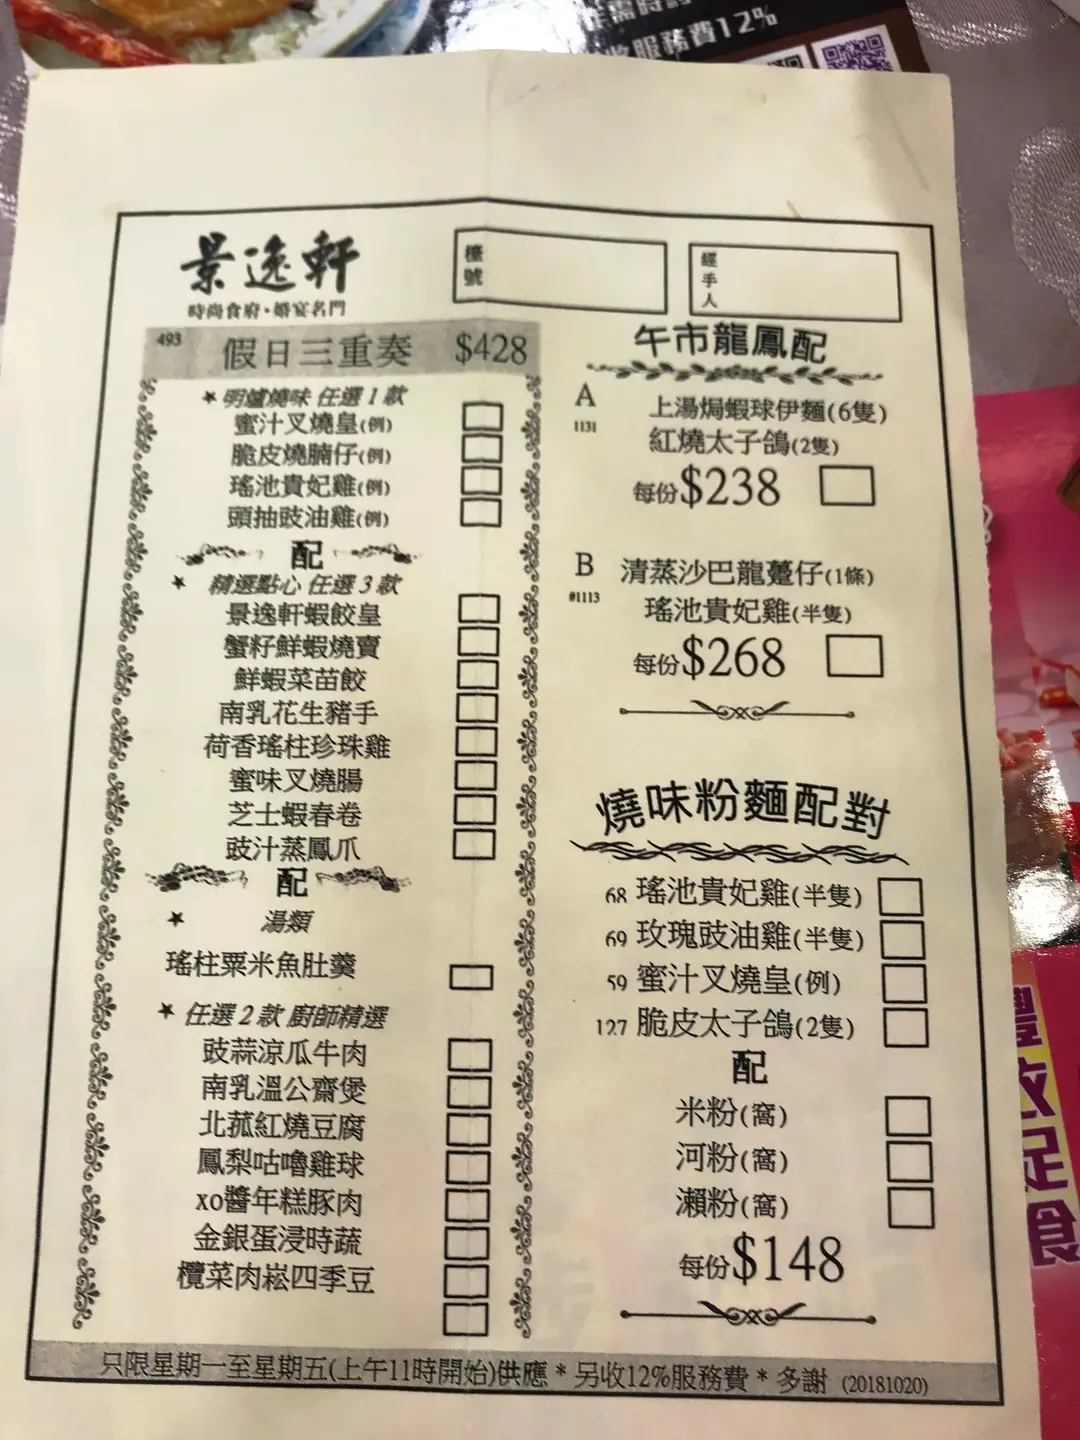 服務費12%
景逸軒
時尚食府・婚宴名門
檯號
經手人
493 假日三重奏 $428
★ 明爐燒味 任選1款
蜜汁叉燒皇(例)
脆皮燒腩仔(例)
瑤池貴妃雞(例)
頭抽豉油雞(例)
配
★ 精選點心 任選3款
景逸軒蝦餃皇
蟹籽鮮蝦燒賣
鮮蝦菜苗餃
南乳花生豬手
荷香瑤柱珍珠雞
蜜味叉燒腸
芝士蝦春卷
豉汁蒸鳳爪
配
★ 湯類
瑤柱粟米魚肚羹
★ 任選2款 廚師精選
豉蒜涼瓜牛肉
南乳溫公齋煲
北菰紅燒豆腐
鳳梨咕嚕雞球
xo醬年糕豚肉
金銀蛋浸時蔬
欖菜肉崧四季豆
午市龍鳳配
A 上湯焗蝦球伊麵(6隻)
1131 紅燒太子鴿(2隻)
每份$238
B 清蒸沙巴龍躉仔(1條)
#1113 瑤池貴妃雞(半隻)
每份$268
燒味粉麵配對
68 瑤池貴妃雞(半隻)
69 玫瑰豉油雞(半隻)
59 蜜汁叉燒皇(例)
127 脆皮太子鴿(2隻)
配
米粉(窩)
河粉(窩)
瀨粉(窩)
每份$148
只限星期一至星期五(上午11時開始)供應 * 另收12%服務費 * 多謝 (20181020)
足
食